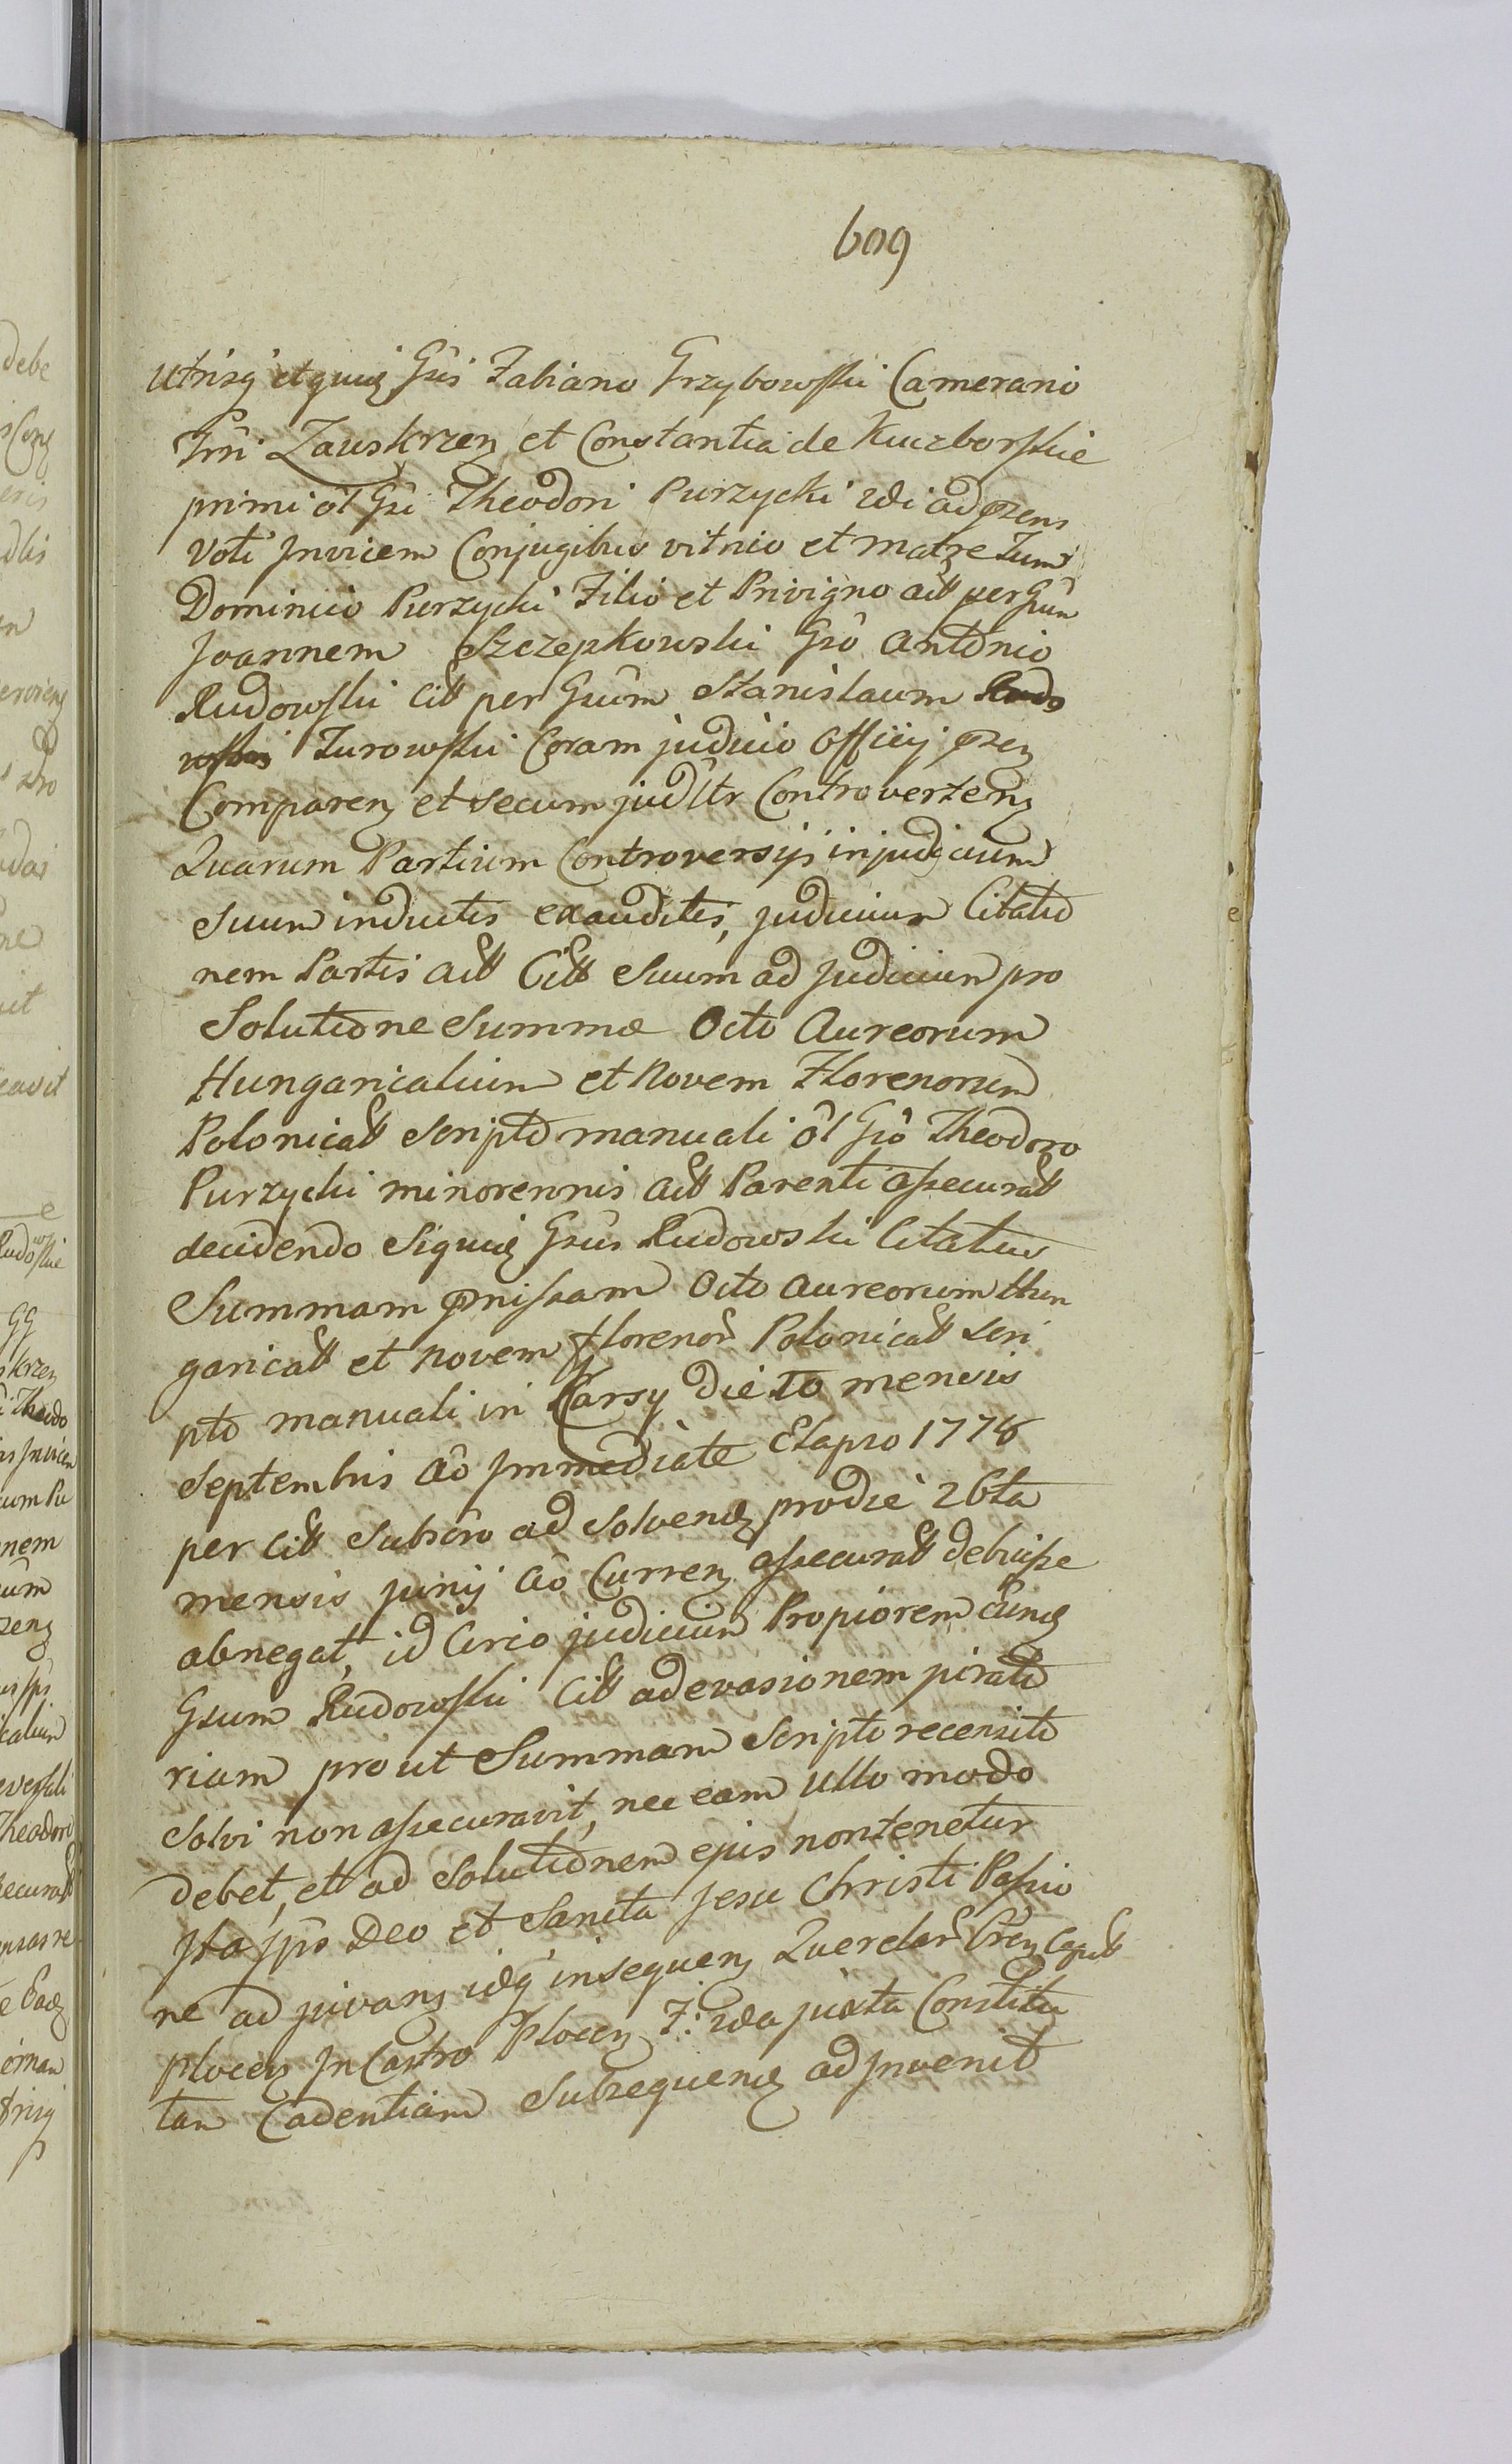 609
Utrisq etquiq Gsis Fabiano Grzybowski Camerario
Trri Zauskrzen et Constantia de Kuczborskie
primi ol Gsi Theodori Purzycki 2di ad przns
Voti Invicem Conjugibus vitrico et Matre Tum
Dominico Purzycki Filio et Privigno act per Gsum
Joannem Szczepkowski Gso Antonio
Rudowski Citt per Gsum Stanislaum Rudo
wski Turowski Coram judicio Officij przn
Comparen et secum judltr Controverten
Quarum Partium Controversijs in judicium
Suum inductis exauditis, judicium Citatio
nem Partis Act Citt Suum ad Judicium pro
Solutione Summæ Octo Aureorum
Hungaricalium et Novem Florenorum
Polonicall Scripto manuali ol Gso Theodoro
Purzycki minorennis Act Parenti assecuratt
decidendo Siquid Gsus Rudowski Citatus
Summam pmissam Octo aureorum Hun
garicall et novem florenor Polonicall Scri
pto manuali in Karsy die 10 mensis
Septembris Ao Immediate Elapso 1778
per Citt Subscro ad Solvend pro die 26ta
mensis Junij Ao Curren assecuratt debuisse
abnegat, id Circo judicium Propiorem eund
Gsum Rudowski Citt ad evasionem jurato
riam prout Summam Scripto recensito
Solvi non assecuravit, nec eam ullo modo
debet, et ad Solutionem ejus non tenetur
Ita Ips Deo et Sancta Jesu Christi Passio
ne adjuvans idq in sequen Querelar Cren Capitt
Plocen In Castro Plocen F: 2da juxta Constitu
tam Cadentiam Subsequend adinvenit